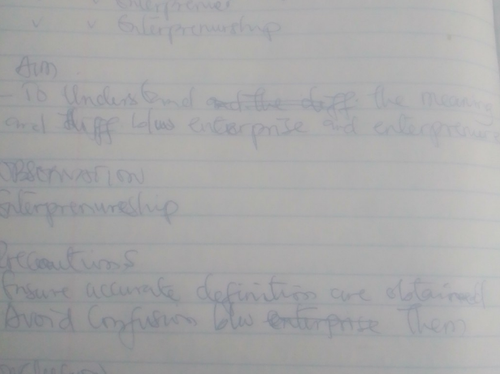 Enterprenershi
" " Enterprenurship
Aim
- To Understand and the diff the meaning
and diff b/w enterprise and enterprenur
Observation
Enterprenureship
Precautions
Ensure accurate definition are obtained
Avoid Confusion b/w enterprise Them
Conclusion